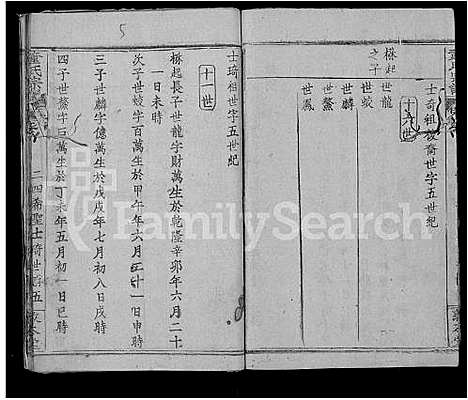 士琦祖後裔世字五世紀
十六世
楙起之子
世龍
世蛟
世麟
世鰲
世鳳
士琦祖世字五世紀
十一世
楙起長子世龍字財萬生於乾隆辛卯年六月二十
一日未時
次子世蛟字百萬生於甲午年六月二十一日申時
三子世麟字億萬生於戊戌年七月初八日戌時
四子世鰲字巨萬生於丁未年五月初一日巳時
5
8
FamilySearch